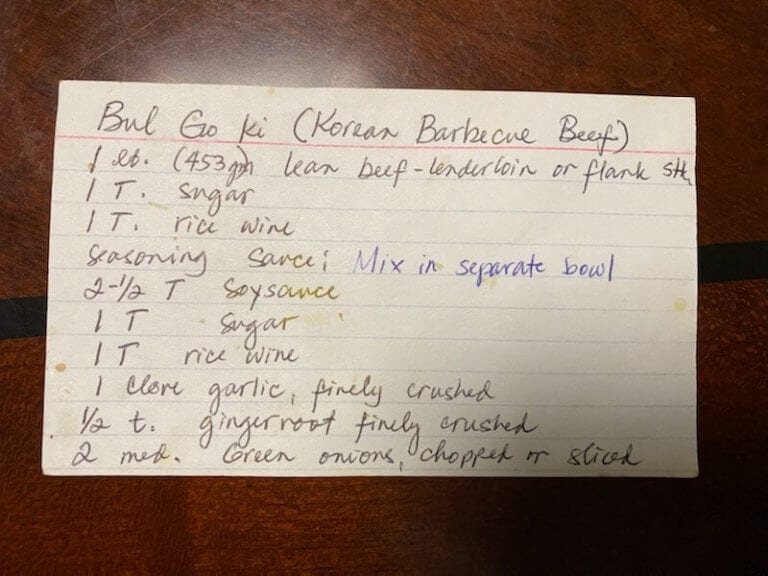 Bul Go Ki (Korean Barbecue Beef)
1 lb. (453 gm) lean beef - tenderloin or flank stk
1 T. sugar
1 T. rice wine
Seasoning Sauce: Mix in separate bowl
2-1/2 T Soysauce
1 T Sugar
1 T rice wine
1 clove garlic, finely crushed
1/2 t. gingerroot finely crushed
2 med. Green onions, chopped or sliced